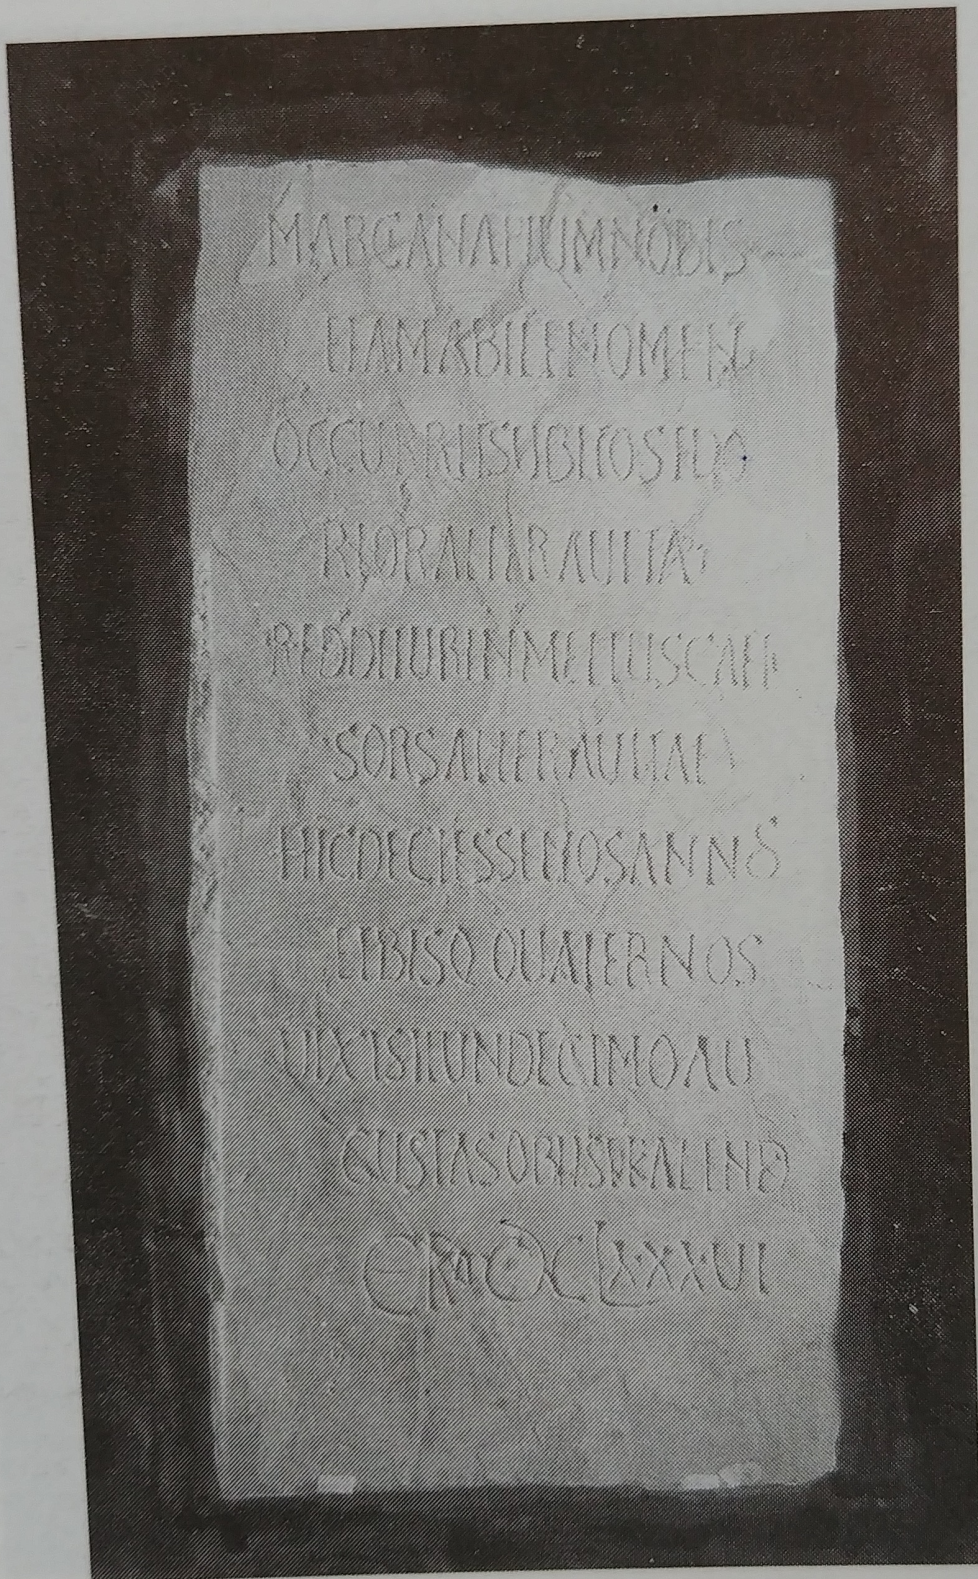 MARCEANATUUMNOBIS
ETAMABILENOMEN
OCCURRITSUBITOSED
ALTERAUITA
REDDITURINMELIUSCAELI
SORSALTERAUITAE
HICDECIESSENOSANNOS
ETBISQ QUATERNOS
UIXISTIUNDECIMOAU
GUSTASOBIISTIKALEND
ERA DCLXXXUI